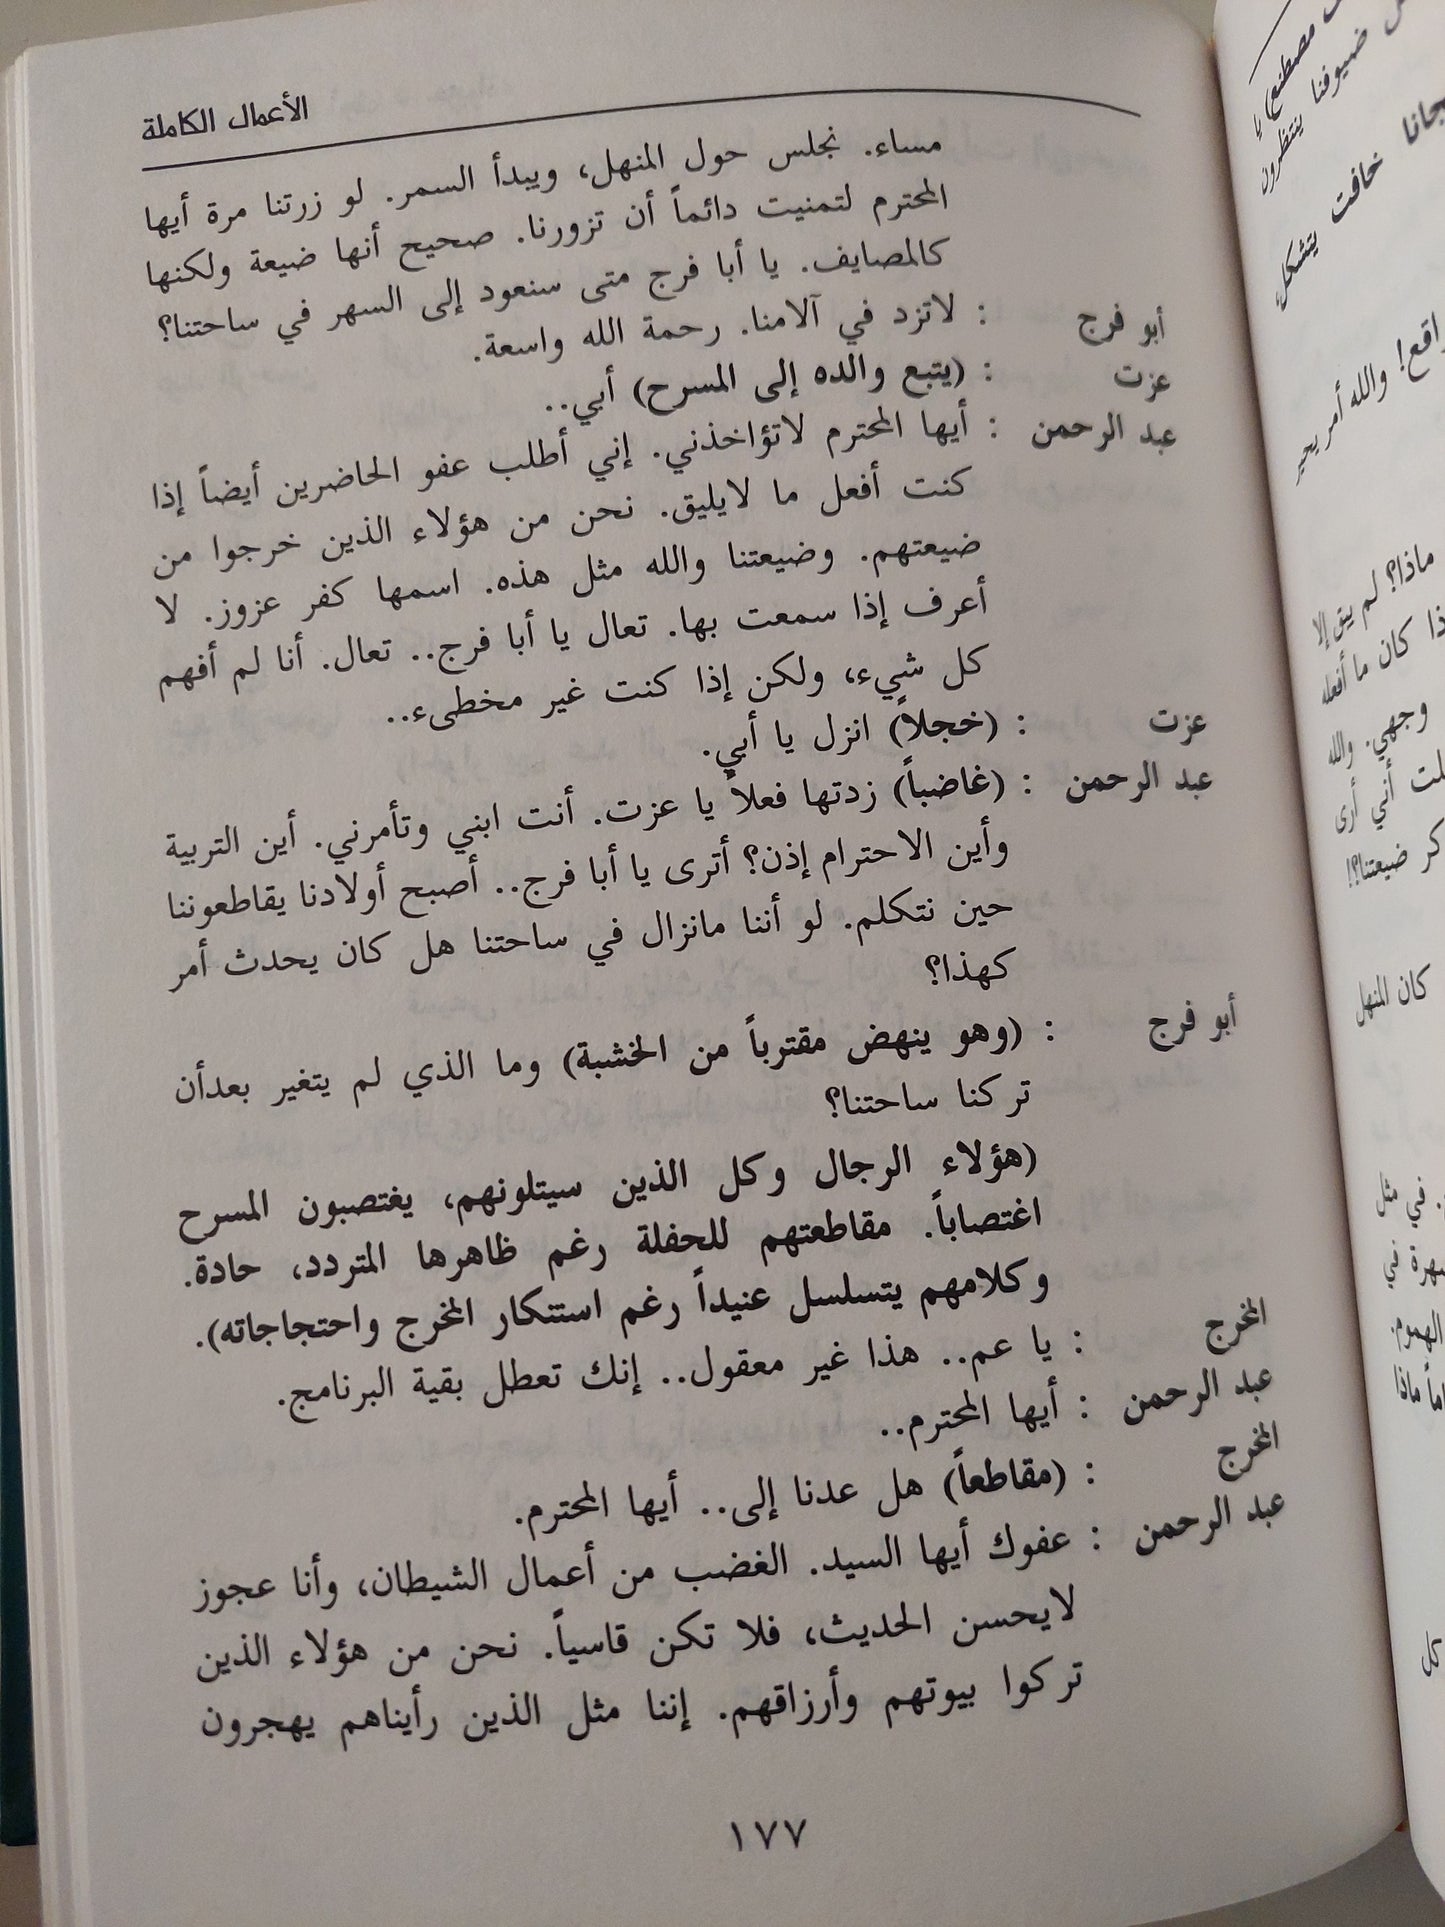 الأعمال الكاملة
مساء. نجلس حول المنهل، ويبدأ السمر. لو زرتنا مرة أيها
المحترم لتمنيت دائماً أن تزورنا. صحيح أنها ضيعة ولكنها
كالمصايف. يا أبا فرج متى سنعود إلى السهر في ساحتنا؟
أبو فرج : لاتزد في آلامنا. رحمة الله واسعة.
عزت : (يتبع والده إلى المسرح) أبي..
عبد الرحمن : أيها المحترم لاتؤاخذني. إني أطلب عفو الحاضرين أيضاً إذا
كنت أفعل ما لايليق. نحن من هؤلاء الذين خرجوا من
ضيعتهم. وضيعتنا والله مثل هذه. اسمها كفر عزوز. لا
أعرف إذا سمعت بها. تعال يا أبا فرج.. تعال. أنا لم أفهم
كل شيء، ولكن إذا كنت غير مخطىء..
عزت : (خجلاً) انزل يا أبي.
عبد الرحمن : (غاضباً) زدتها فعلاً يا عزت. أنت ابني وتأمرني. أين التربية
وأين الاحترام إذن؟ أترى يا أبا فرج.. أصبح أولادنا يقاطعوننا
حين نتكلم. لو أننا مانزال في ساحتنا هل كان يحدث أمر
كهذا؟
أبو فرج : (وهو ينهض مقترباً من الخشبة) وما الذي لم يتغير بعدأن
تركنا ساحتنا؟
(هؤلاء الرجال وكل الذين سيتلونهم، يغتصبون المسرح
اغتصاباً. مقاطعتهم للحفلة رغم ظاهرها المتردد، حادة.
وكلامهم يتسلسل عنيداً رغم استنكار المخرج واحتجاجاته).
المخرج : يا عم.. هذا غير معقول.. إنك تعطل بقية البرنامج.
عبد الرحمن : أيها المحترم..
المخرج : (مقاطعاً) هل عدنا إلى.. أيها المحترم.
عبد الرحمن : عفوك أيها السيد. الغضب من أعمال الشيطان، وأنا عجوز
لايحسن الحديث، فلا تكن قاسياً. نحن من هؤلاء الذين
تركوا بيوتهم وأرزاقهم. إننا مثل الذين رأيناهم يهجرون
١٧٧
مصطنع) يا
ضيوفنا ينتظرون
خافت يتشكل
والله أمر يحير
ماذا؟ لم يبق إلا
كان ما أفعله
وجهي. والله
أني أرى
ضيعتنا؟!
كان المنهل
في مثل
في
الهموم.
ماذا
كل